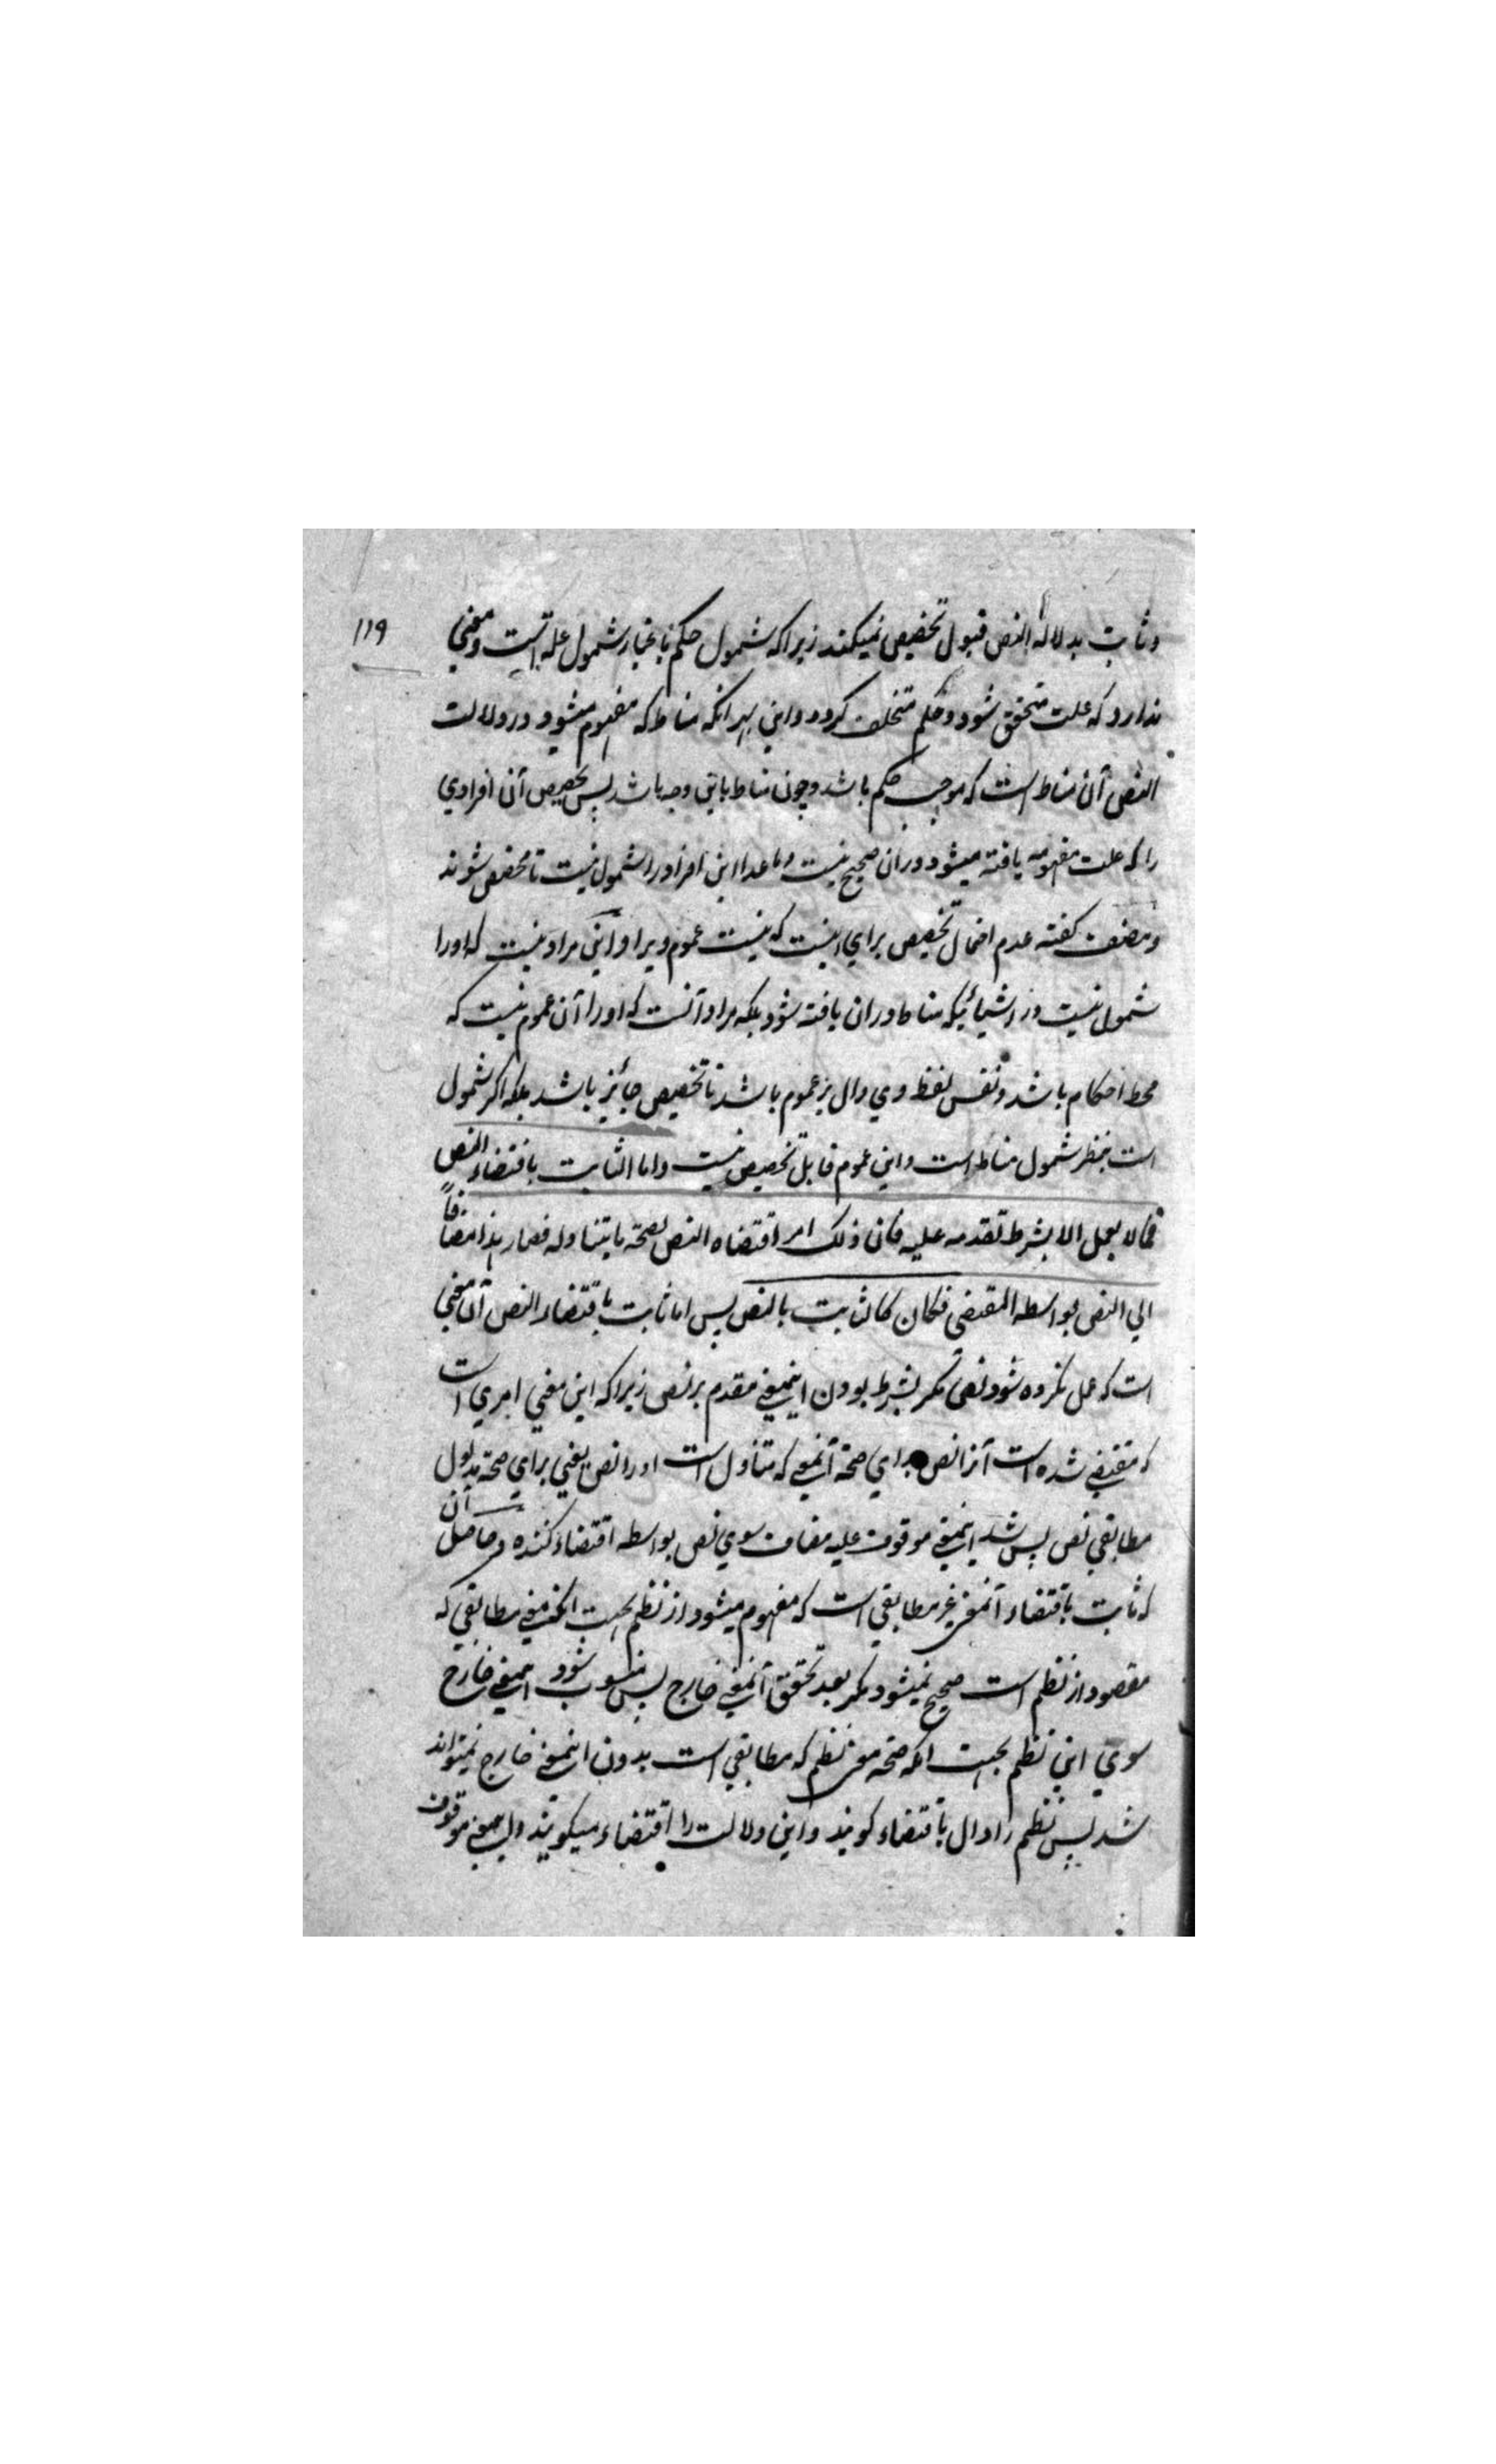 ۱۱۹
و ثابت بدلالة النص قبول تخصیص نمیکند زیراکه شمول حکم باعتبار شمول علة است و معنی
ندارد که علت متحقق شود و حکم متخلف گردد و این بهر آنکه مناط که مفهوم میشود در دلالت
النص آن مناط است که موجب حکم باشد و چون مناط باین وجه باشد پس تخصیص آن افرادی
را که علت مفهومه یافته میشود دران صحیح نیست و ماعدا این افراد را شمول نیست تا مخصص شوند
و مصنف گفته عدم احتمال تخصیص برای اینست که نیست عموم ویرا و این مراد نیست که اورا
شمول نیست در اشیائیکه مناط دران یافته شود بلکه مراد آنست که اورا آن عموم نیست که
محط احکام باشد و نفس لفظ وی دال بر عموم باشد تا تخصیص جائز باشد بلکه اگر شمول
است بنظر شمول مناط است و این عموم قابل تخصیص نیست و اما الثابت باقتضاء النص
فما لا یعمل الا بشرط تقدمه علیه فان ذلک امر اقتضاه النص لصحة ما یتناوله فصار هذا مضافاً
الی النص بواسطة المقتضی فکان کالثابت بالنص پس اما ثابت باقتضاء النص آن معنی
است که عمل نکرده شود نص مگر بشرط بودن اینمعنی مقدم بر نص زیراکه این معنی امری است
که مقتضی شده است آنرا نص برای صحة آنمعنی که متناول است اورا نص یعنی برای صحة مدلول
مطابقی نص پس شد اینمعنی موقوف علیه مضاف سوی نص بواسطه اقتضاء کننده و حاصل آن
که ثابت باقتضاء آنمعنی غیر مطابقی است که مفهوم میشود از نظم بجهت آنکه معنی مطابقی که
مقصود از نظم است صحیح نمیشود مگر بعد تحقق آنمعنی خارج پس منسوب شود اینمعنی خارج
سوی این نظم بجهت آنکه صحة معنی نظم که مطابقی است بدون اینمعنی خارج نمیتواند
شد پس نظم را دال باقتضاء گویند و این دلالت را اقتضاء میگویند موقوف